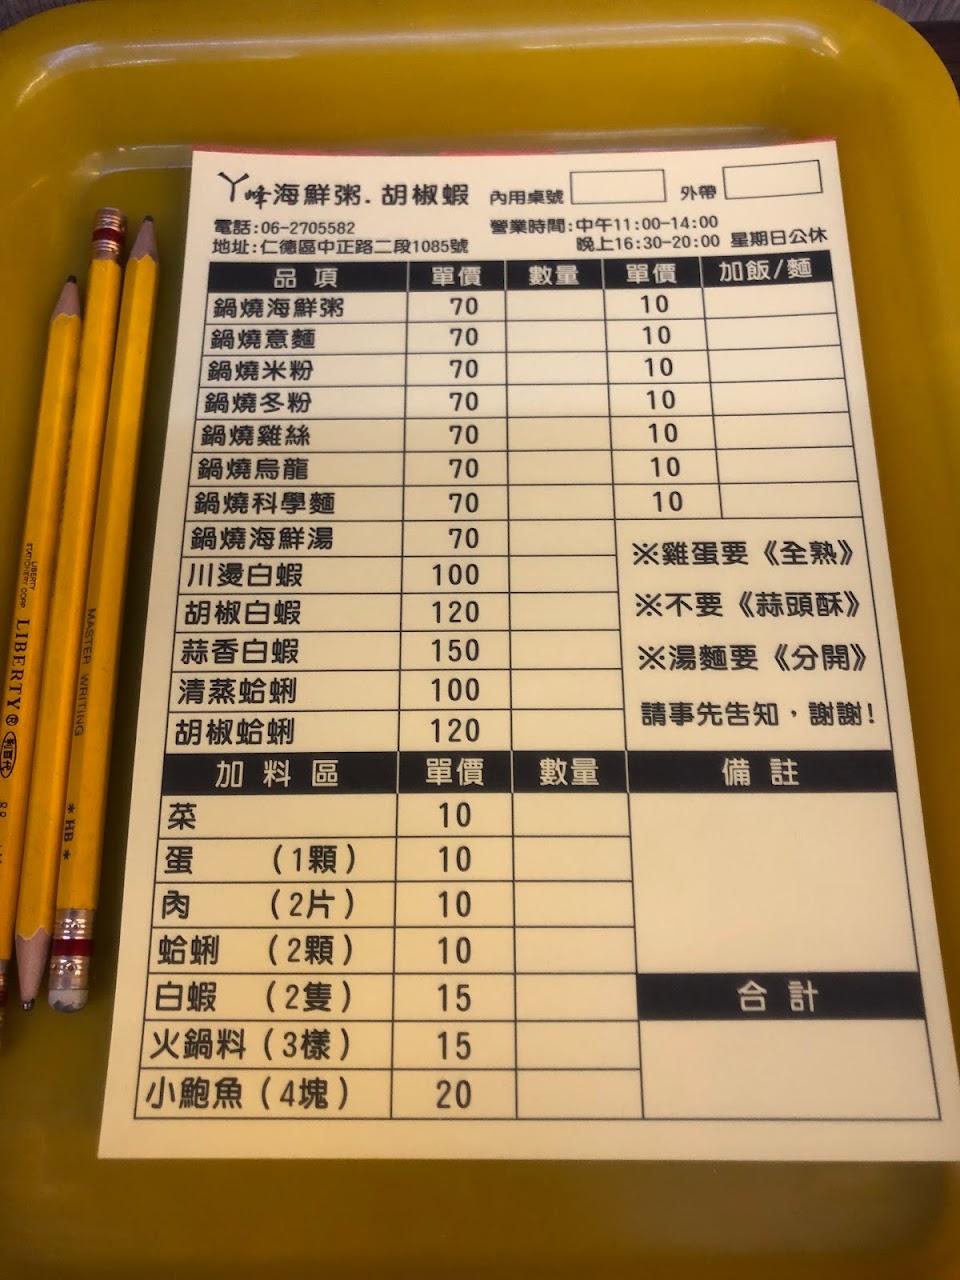 丫峰海鮮粥.胡椒蝦 內用桌號 外帶
電話:06-2705582 營業時間:中午11:00-14:00
地址:仁德區中正路二段1085號 晚上16:30-20:00 星期日公休
品項 單價 數量 單價 加飯/麵
鍋燒海鮮粥 70 10
鍋燒意麵 70 10
鍋燒米粉 70 10
鍋燒冬粉 70 10
鍋燒雞絲 70 10
鍋燒烏龍 70 10
鍋燒科學麵 70 10
鍋燒海鮮湯 70
川燙白蝦 100
胡椒白蝦 120
蒜香白蝦 150
清蒸蛤蜊 100
胡椒蛤蜊 120
※雞蛋要《全熟》
※不要《蒜頭酥》
※湯麵要《分開》
請事先告知，謝謝!
加料區 單價 數量 備註
菜 10
蛋 (1顆) 10
肉 (2片) 10
蛤蜊 (2顆) 10
白蝦 (2隻) 15
火鍋料 (3樣) 15
小鮑魚 (4塊) 20
合計
LIBERTY
STATIONERY CORP.
LIBERTY® 利百代
MASTER WRITING
* HB *